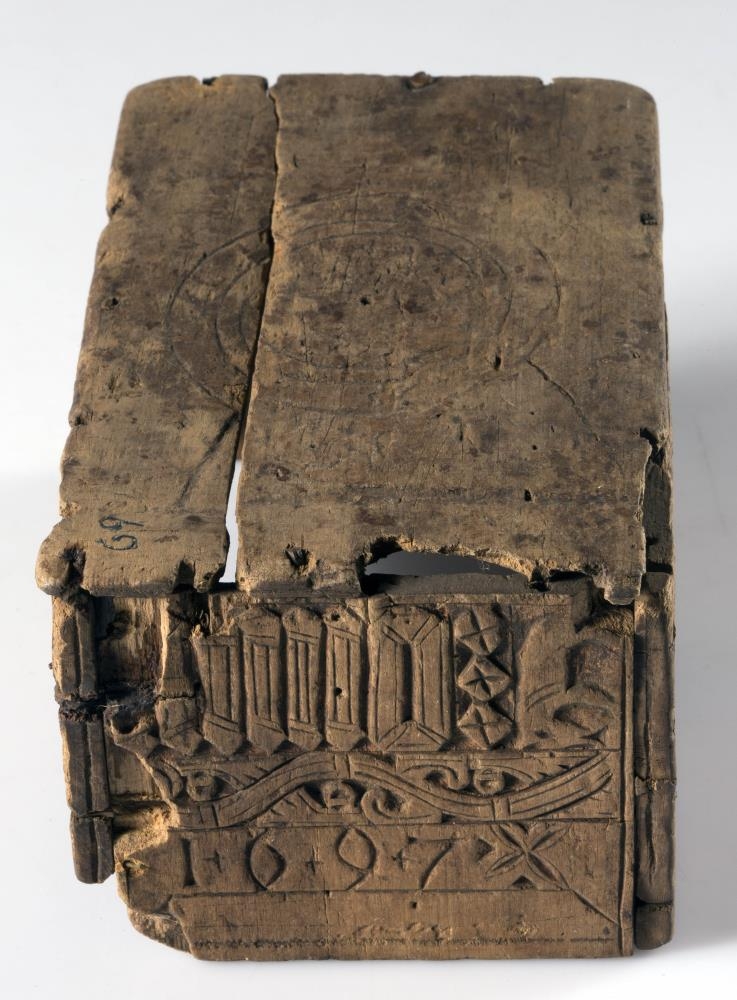 69
1+6+9+7